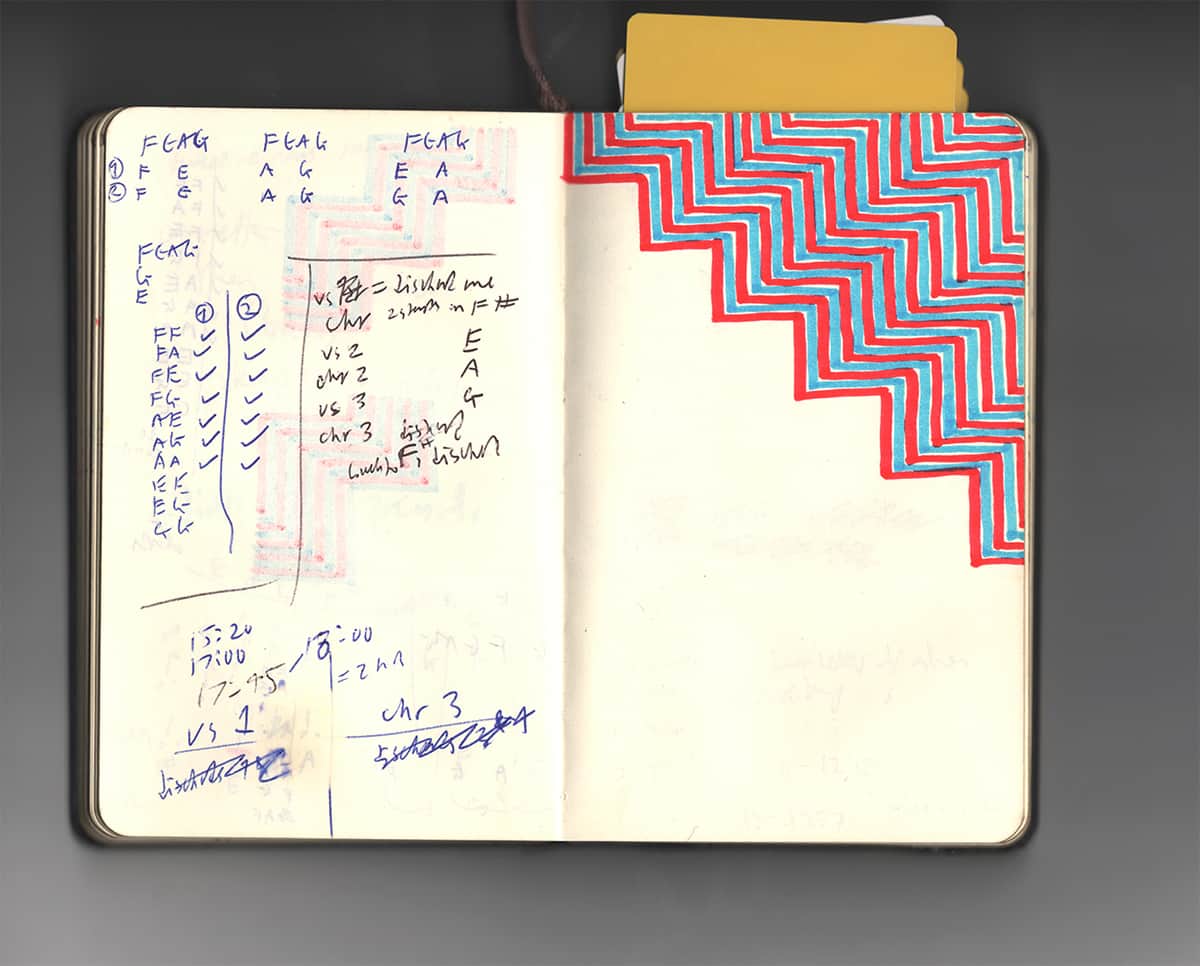 FEAG FEAG FEAG
① F E A G E A
② F E A G G A
FEAG
G
E
① ②
FF ✓ ✓
FA ✓ ✓
FE ✓ ✓
FG ✓ ✓
AE ✓ ✓
AG ✓ ✓
AA ✓ ✓
EE
EG
GG
vs = me
chr 2 starts in F#
vs 2 E
chr 2 A
vs 3 G
chr 3
F#
15:20
17:00
17:45 / 18:00
= 2 hr
vs 1
chr 3